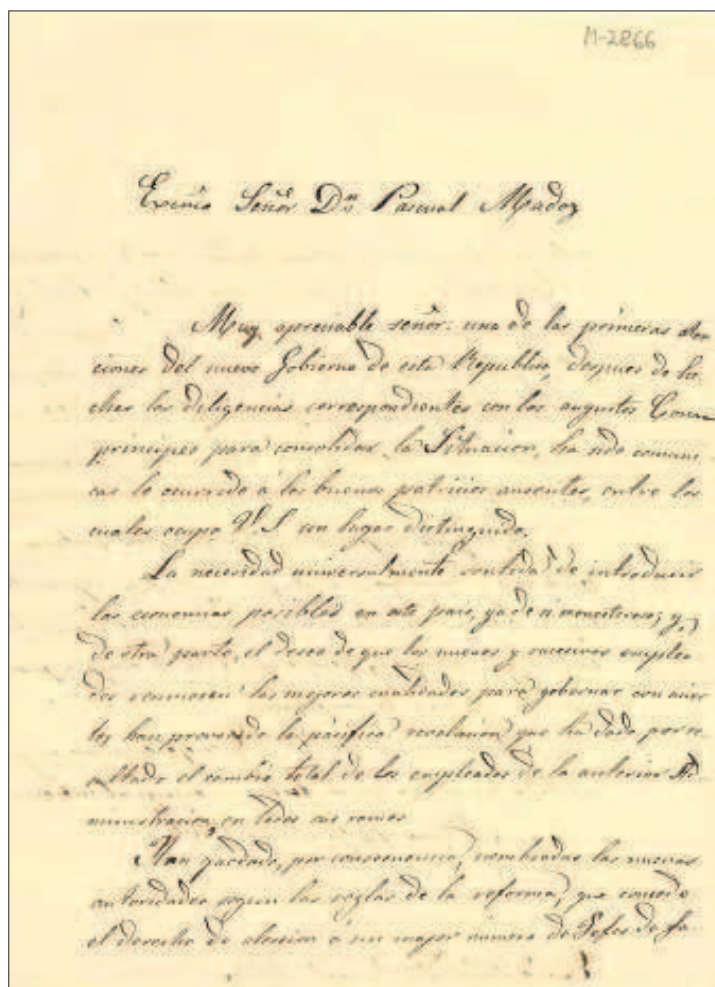 M-2866
Excmo Señor Dn Pascual Madoz
Muy apreciable señor: una de las primeras aten
ciones del nuevo Gobierno de esta Republica, despues de he
chas las diligencias correspondientes con los augustos
principes para consolidar la Situacion, ha sido comuni
car lo ocurrido á los buenos patricios ausentes, entre los
cuales ocupa V.S. un lugar distinguido.
La necesidad universalmente sentida de introducir
las economias posibles en este pais, ya de si menesteroso; y,
de otra parte, el deseo de que los nuevos y sucesivos emplea
dos reuniesen las mejores cualidades para gobernar con acier
to, han provocado la pacifica revolucion que ha dado por re
sultado el cambio total de los empleados de la anterior Ad
ministracion en todos sus ramos
Han quedado, por consecuencia, nombradas las nuevas
autoridades segun las reglas de la reforma, que concede
el derecho de eleccion á un mayor número de Gefes de fa-